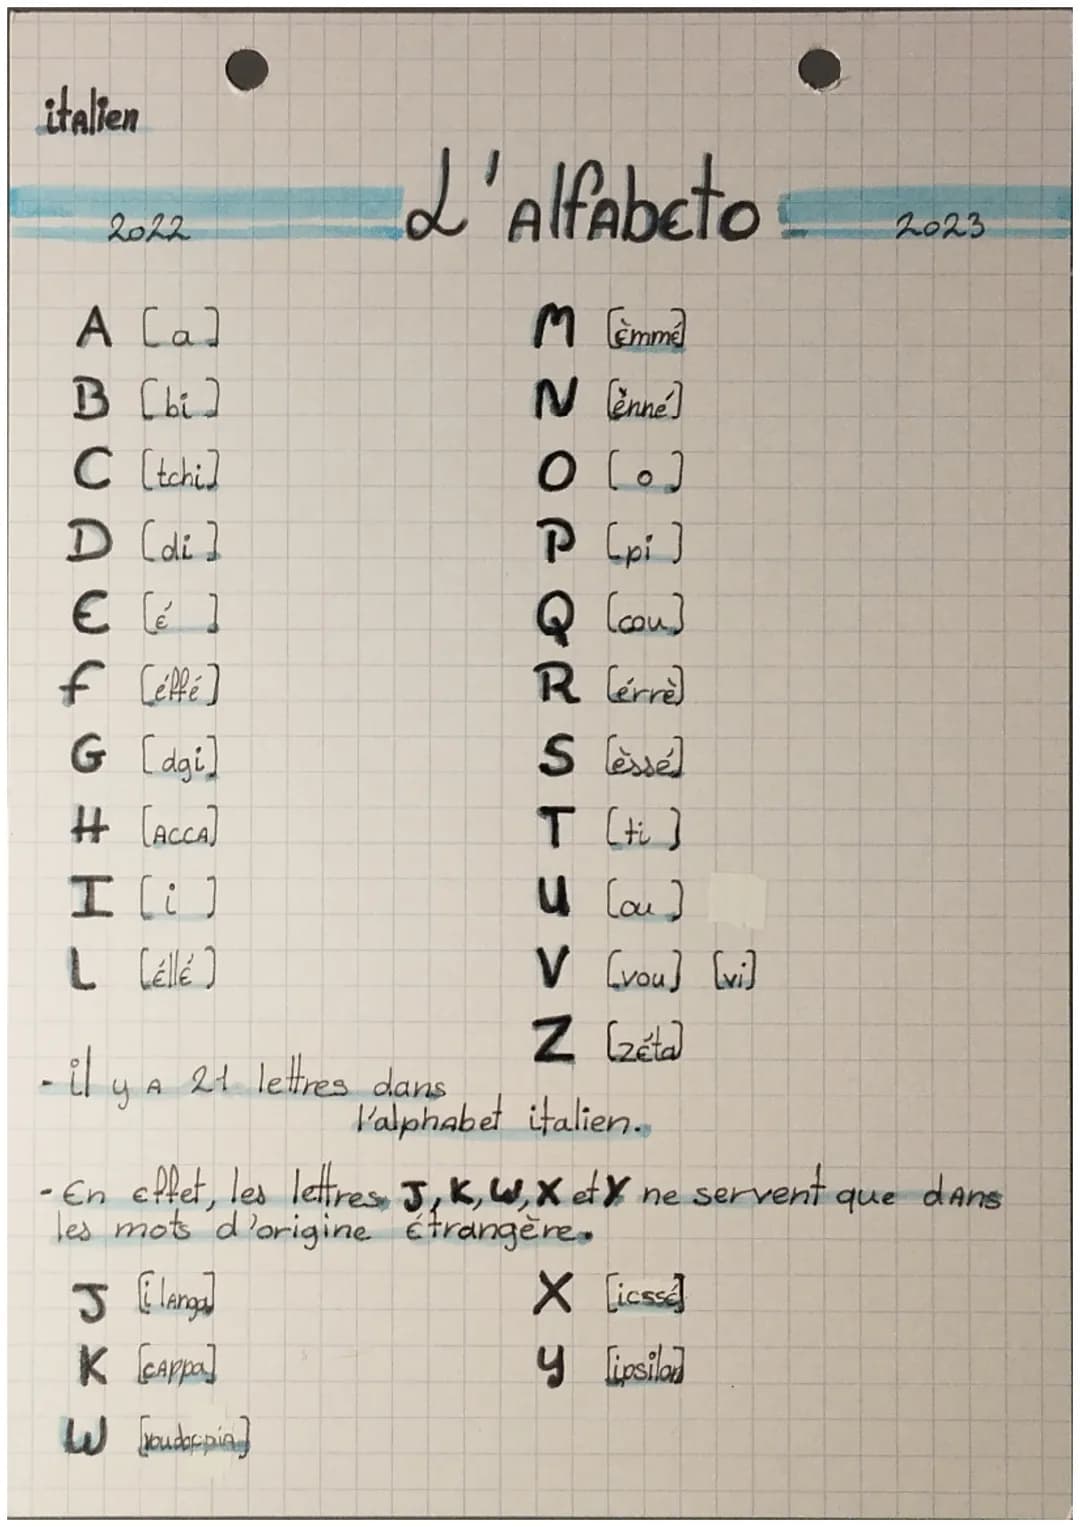 italien
L'alfabeto
2022 2023
A [a]
B [bi]
C [tchi]
D [di]
E [é]
f [éffé]
G [dgi]
H [ACCA]
I [i]
L [éllé]
M [èmmé]
N [ènné]
O [o]
P [pi]
Q [cou]
R [érrè]
S [èssé]
T [ti]
U [ou]
V [vou] [vi]
Z [zéta]
- il y A 21 lettres dans
l'alphabet italien.
- En effet, les lettres J, K, W, X et Y ne servent que dans
les mots d'origine étrangère.
J [i langa]
K [cappa]
W
X [icssé]
y [ipsilon]